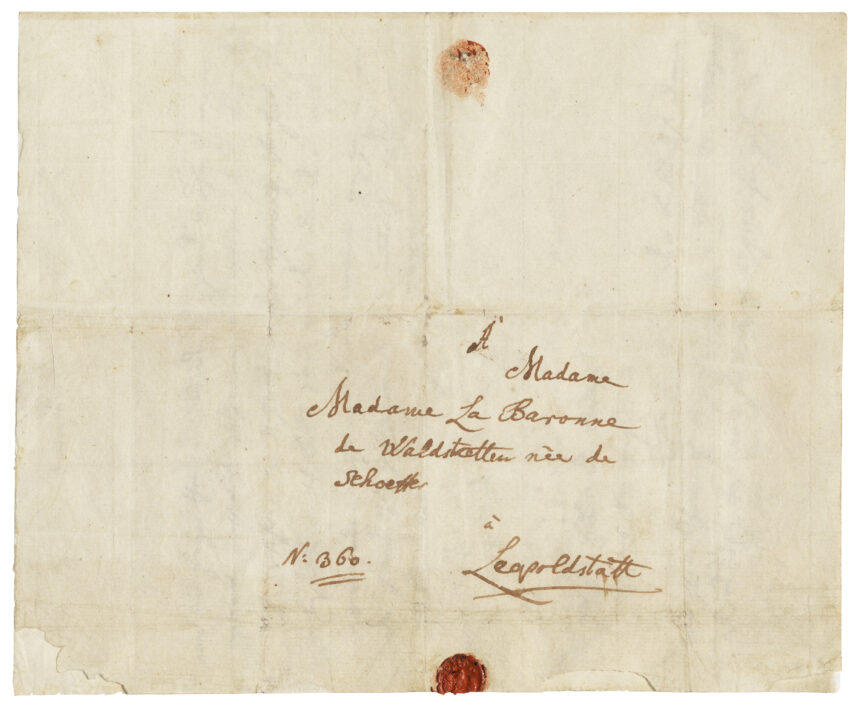 A
Madame
Madame La Baronne
de Waldstætten nèe de
Schoeffer
à
Leopoldstätt
N: 360.